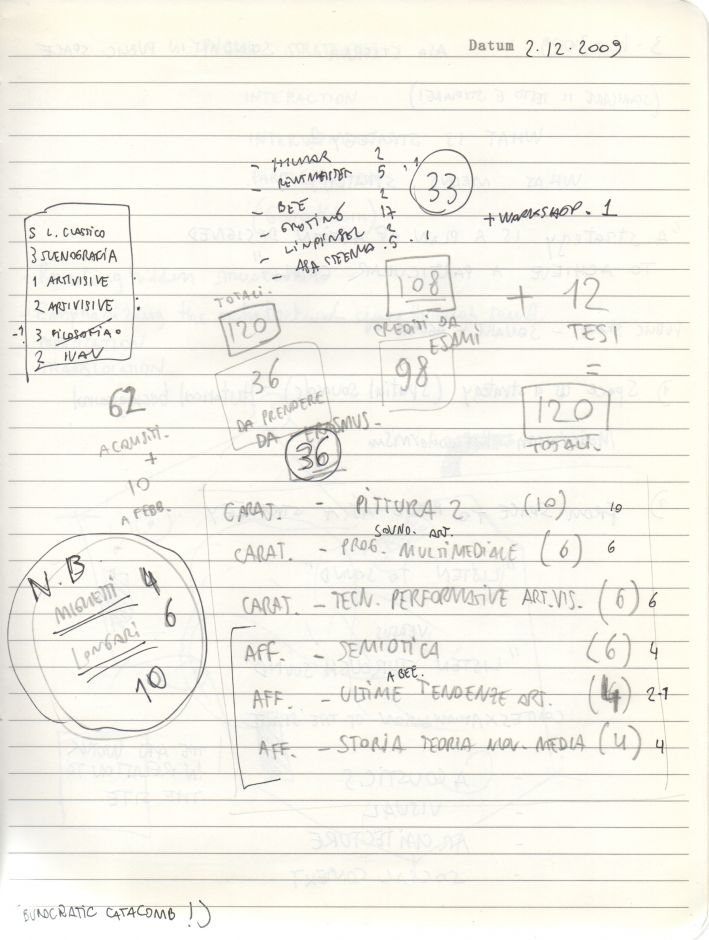 Datum 2.12.2009
- 2
- 5
- BEE 2
- 17
- LINPINSEL 2
- ASA STEENA 5
33
+ WORKSHOP. 1
5 L. CLASTICO
3 SCENOGRAFIA
1 ARTIVISIVE
2 ARTIVISIVE
-1 3 FILOSOFIA
2 IUAV
TOTALI.
120
108
CREDITI DA
ESAMI
98
+ 12
TESI
=
120
TOTALI.
36
DA PRENDERE
DA ERASMUS-
36
62
ACQUISITI.
+
10
A FEBB.
N.B
MIGNETTI 4
6
LONGARI
10
CARAT. - PITTURA 2 (10) 10
SOUND. ART.
CARAT. - PROG. MULTIMEDIALE (6) 6
CARAT. - TECN. PERFORMATIVE ART.VIS. (6) 6
AFF. - SEMIOTICA (6) 4
A BEE.
AFF. - ULTIME TENDENZE ART. (4) 2-1
AFF. - STORIA TEORIA NOV. MEDIA (4) 4
BUROCRATIC CATACOMB !)